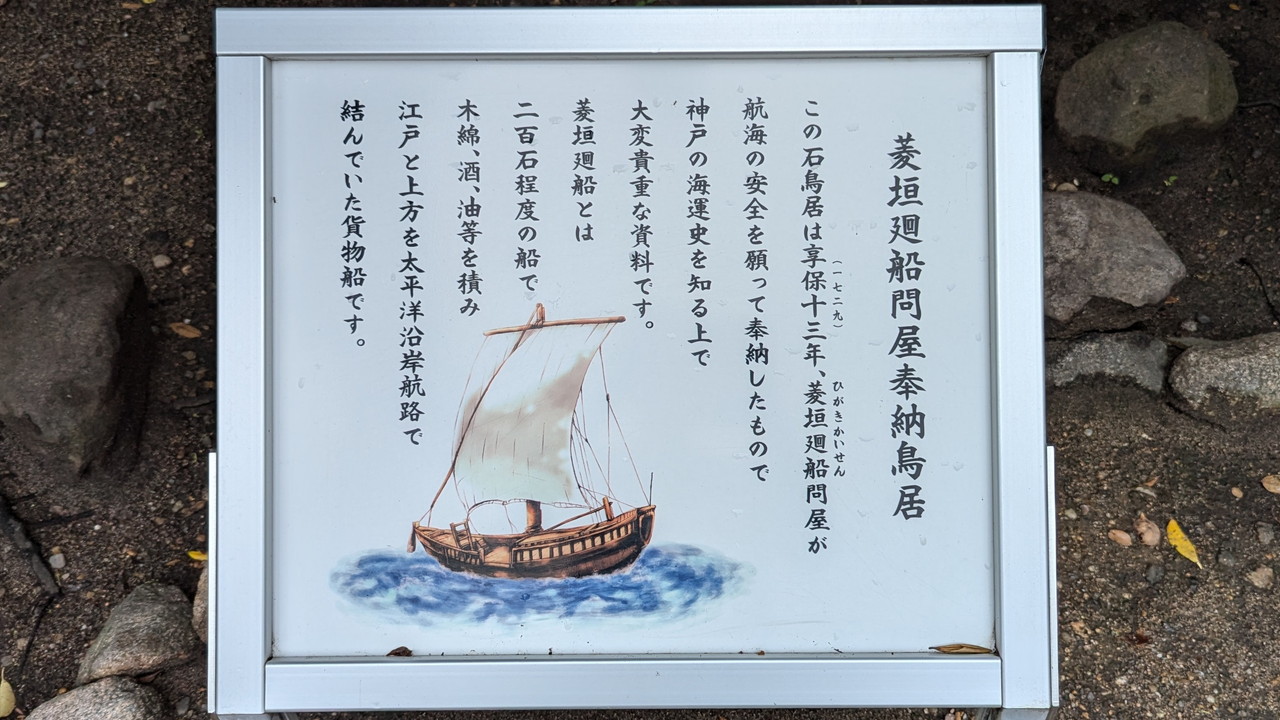 菱垣廻船問屋奉納鳥居
この石鳥居は享保十三年、菱垣廻船問屋が
(一七二九)
ひがきかいせん
航海の安全を願って奉納したもので
神戸の海運史を知る上で
大変貴重な資料です。
菱垣廻船とは
二百石程度の船で
木綿、酒、油等を積み
江戸と上方を太平洋沿岸航路で
結んでいた貨物船です。